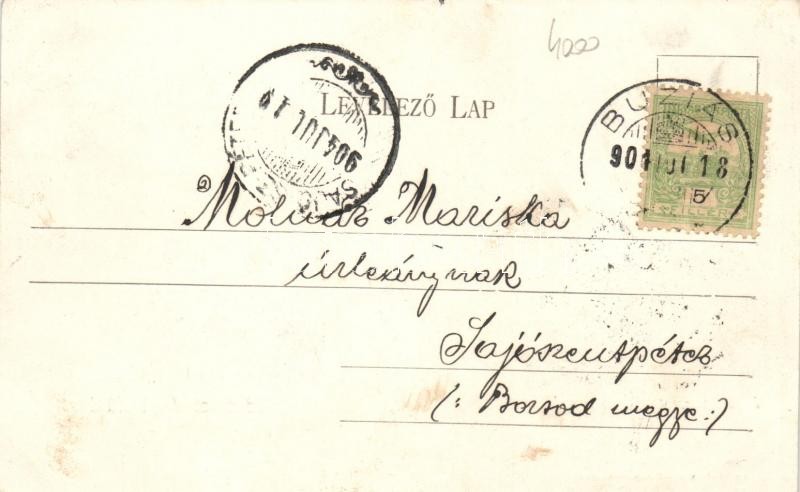 4000
LEVELEZŐ LAP
BUZIÁS
901 JUL 18
5
FILLÉR
904 JUL 19
Molnár Mariska
úrleánynak
Sajószentpéter
(: Borsod megye :)